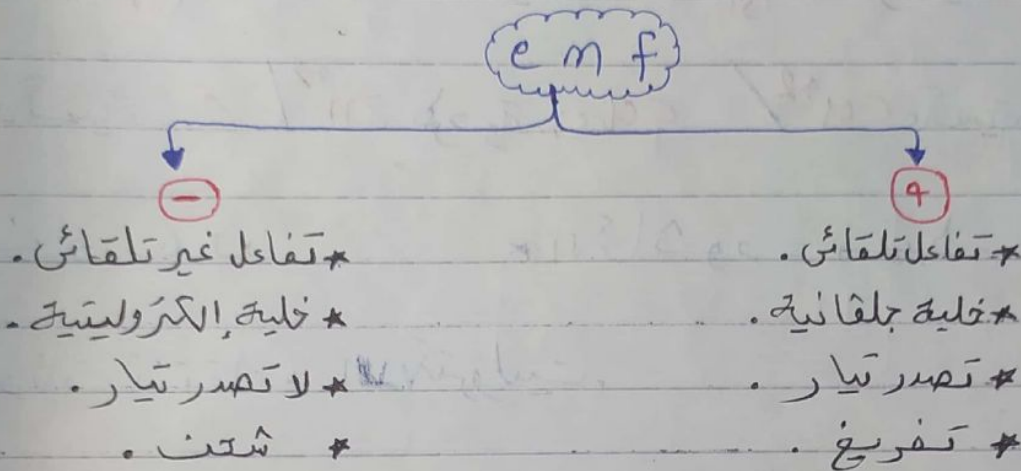 emf
+
* تفاعل تلقائى .
* خلية جلفانية .
* تصدر تيار .
* تفريغ .
-
* تفاعل غير تلقائى .
* خلية إلكتروليتية .
* لا تصدر تيار .
* شحن .